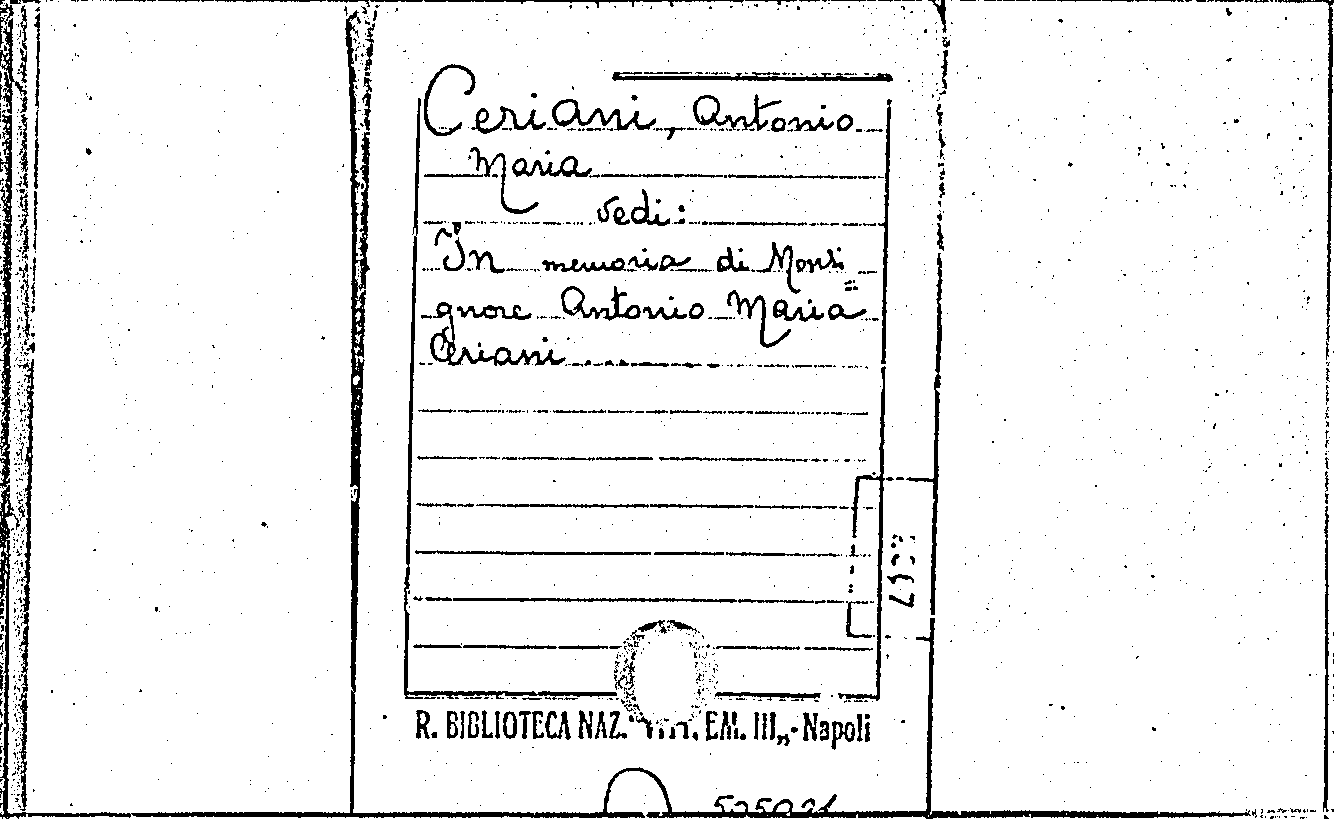 Ceriani, Antonio
Maria
vedi:
In memoria di Monsi=
gnore Antonio Maria
Ceriani....
R. BIBLIOTECA NAZ. " VITT. EM. III„ - Napoli